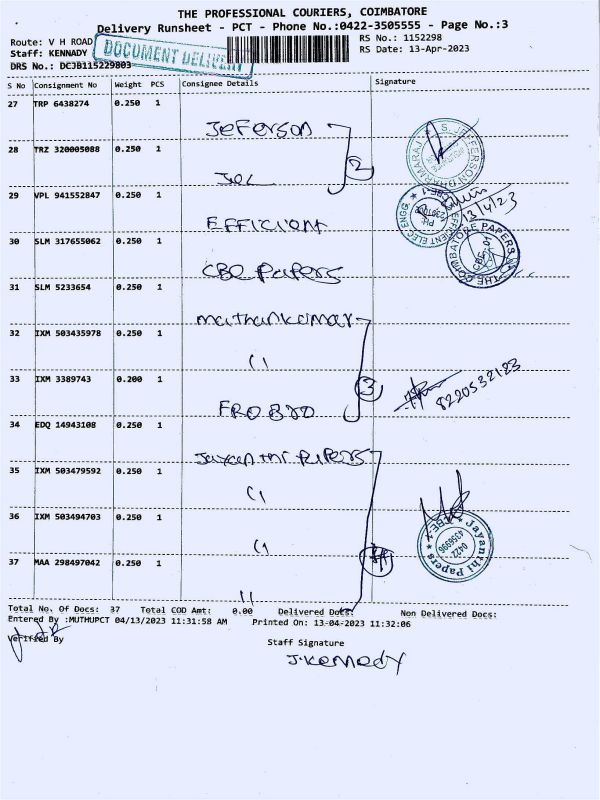 THE PROFESSIONAL COURIERS, COIMBATORE
Delivery Runsheet - PCT - Phone No.:0422-3505555 - Page No.:3
Route: V H ROAD
RS No.: 1152298
Staff: KENNADY
RS Date: 13-Apr-2023
DOCUMENT DELIVERY
DRS No.: DCJB115229803
S No Consignment No Weight PCS Consignee Details Signature
27 TRP 6438274 0.250 1
Jeferson
28 TRZ 320005088 0.250 1
2
29 VPL 941552847 0.250 1
EFFICIENT
13/4/23
30 SLM 317655062 0.250 1
CBE Papers
31 SLM 5233654 0.250 1
mathankumar
32 IXM 503435978 0.250 1
33 IXM 3389743 0.200 1
3
8220532123
34 EDQ 14943108 0.250 1
Jayanthi Papers
35 IXM 503479592 0.250 1
36 IXM 503494703 0.250 1
Jayanthi Papers
0422-
CBE-1
37 MAA 298497042 0.250 1
Total No. Of Docs: 37 Total COD Amt: 0.00 Delivered Docs: Non Delivered Docs:
Entered By :MUTHUPCT 04/13/2023 11:31:58 AM Printed On: 13-04-2023 11:32:06
Verified By
Staff Signature
J.Kennedy